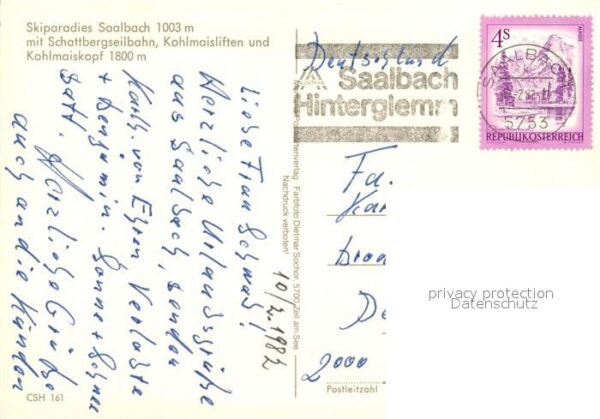 Skiparadies Saalbach 1003 m
mit Schattbergseilbahn, Kohlmaisliften und
Kohlmaiskopf 1800 m
Liebe Frau
Herzliche Urlaubsgrüße
aus Saalbach, senden
Karlh. von Eyren
+ Benjamin. Sonne + Schnee
satt. Herzliche Grüße
auch an die Kunden
10/2. 1982
CSH 161
Farbfoto Dietmar Sochor, 5700 Zell am See
Nachdruck verboten!
Deutschland
Saalbach
Hinterglemm
SAALBACH
5753
4 S
REPUBLIK ÖSTERREICH
Fa.
2000
Postleitzahl
privacy protection
Datenschutz